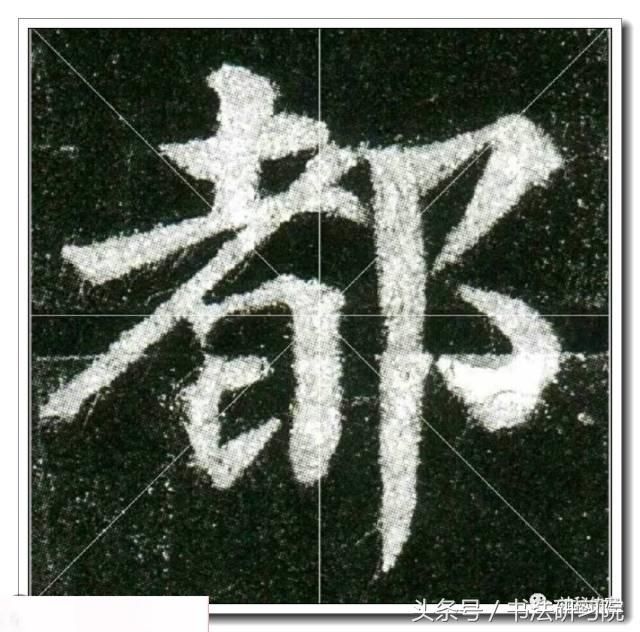 都
头条号 / 书法研习院